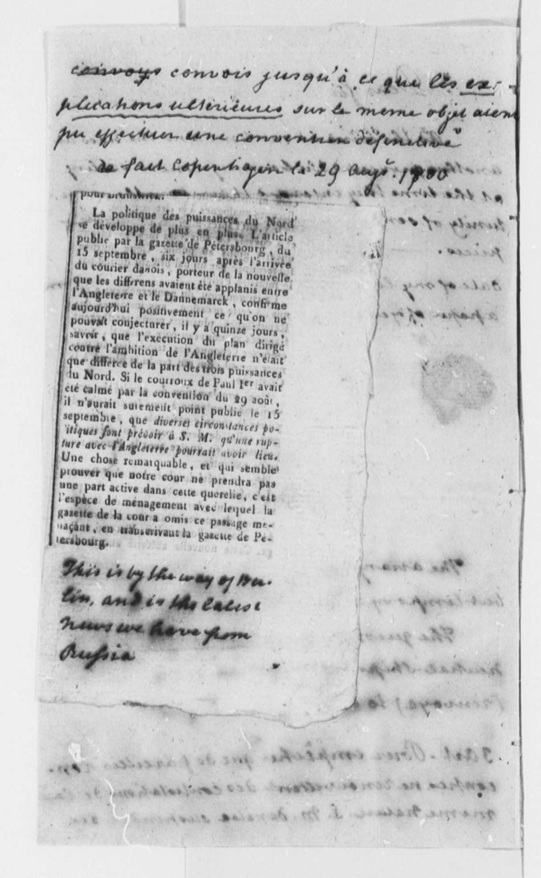 convoys convois jusqu'à ce que les ex-
plications ultérieures sur le meme objet aient
pu effectuer une convention définitive"
de fait Copenhagen le 29 Augs. 1800
La politique des puissances du Nord
se développe de plus en plus. L'article
publié par la gazette de Pétersbourg, du
15 septembre, six jours après l'arrivée
du courier danois, porteur de la nouvelle
que les différens avaient été applanis entre
l'Angleterre et le Dannemarck, confirme
aujourd'hui positivement ce qu'on ne
pouvait conjecturer, il y a quinze jours;
savoir, que l'exécution du plan dirigé
contre l'ambition de l'Angleterre n'était
que différée de la part des trois puissances
du Nord. Si le courroux de Paul Ier avait
été calmé par la convention du 29 août,
il n'aurait surement point publié le 15
septembre, que diverses circonstances po-
litiques font prévoir à S. M. qu'une rup-
ture avec l'Angleterre pourrait avoir lieu.
Une chose remarquable, et qui semble
prouver que notre cour ne prendra pas
une part active dans cette querelle, c'est
l'espèce de ménagement avec lequel la
gazette de la cour a omis ce passage me-
naçant, en transcrivant la gazette de Pé-
tersbourg.
This is by the way of Ber-
lin, and is the latest
news we have from
Russia